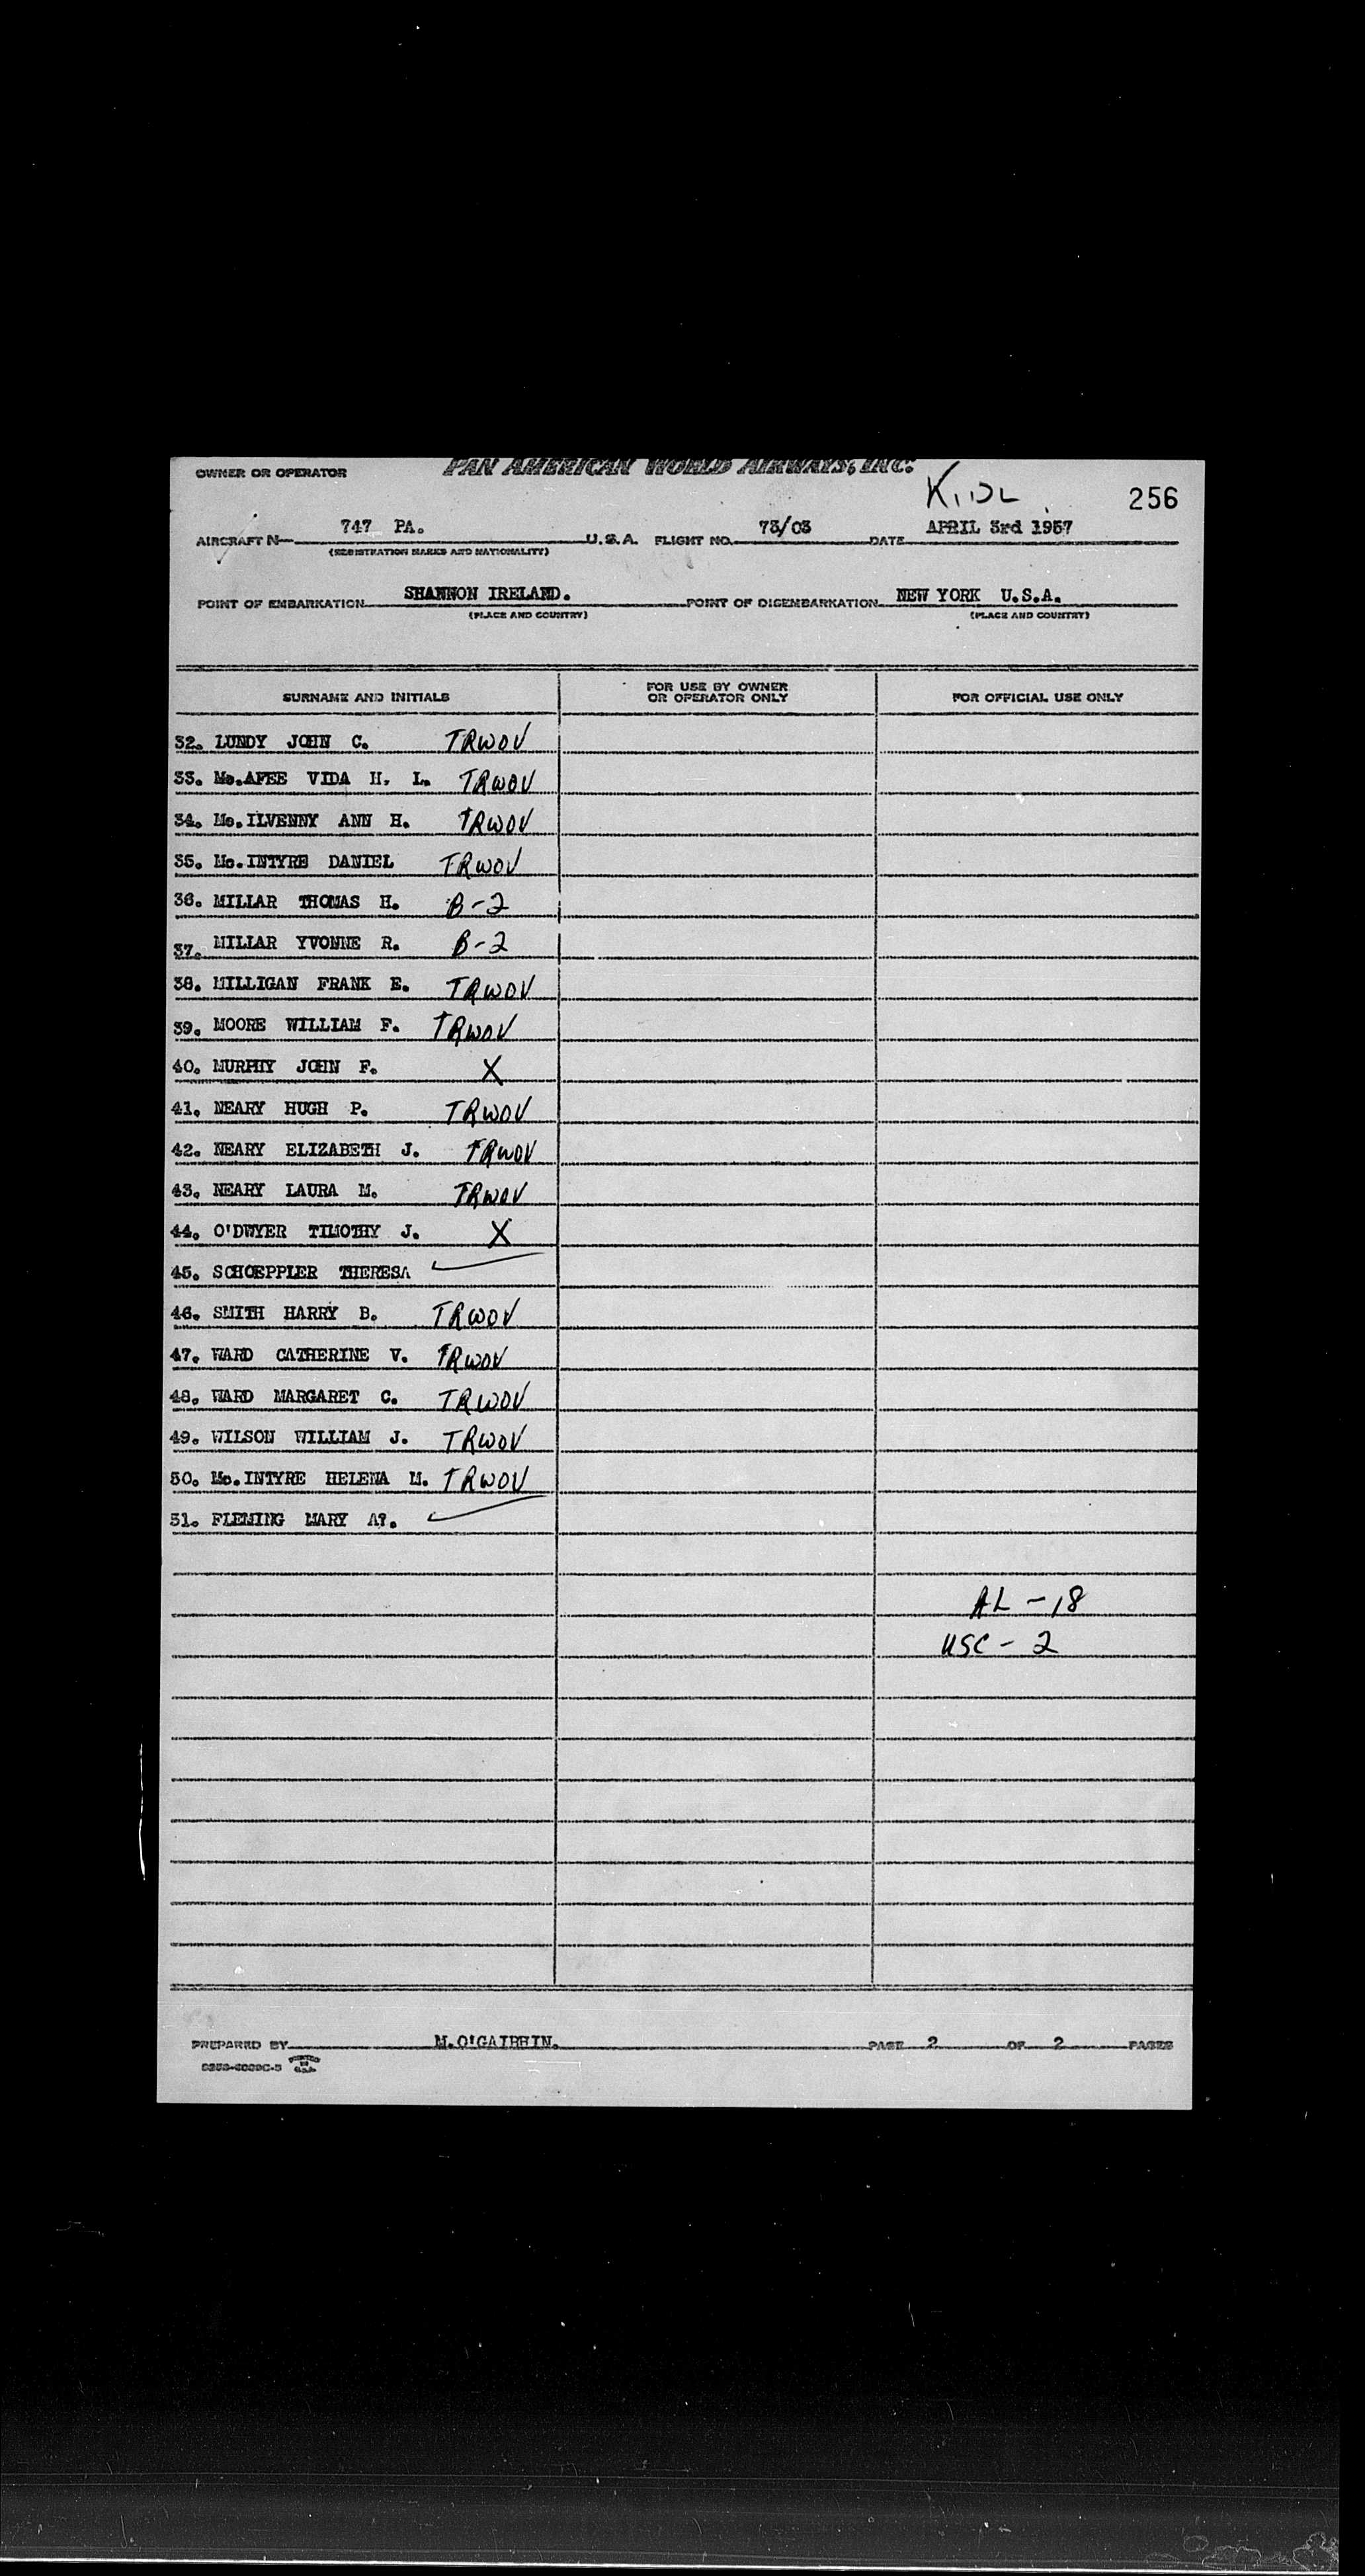 OWNER OR OPERATOR PAN AMERICAN WORLD AIRWAYS, INC.
KIDL 256
AIRCRAFT N— 747 PA. U.S.A. FLIGHT NO. 73/03 DATE APRIL 3rd 1957
(REGISTRATION MARKS AND NATIONALITY)
POINT OF EMBARKATION SHANNON IRELAND. POINT OF DISEMBARKATION NEW YORK U.S.A.
(PLACE AND COUNTRY) (PLACE AND COUNTRY)
SURNAME AND INITIALS FOR USE BY OWNER OR OPERATOR ONLY FOR OFFICIAL USE ONLY
32. LUNDY JOHN C. TRWOV
33. Mc.AFEE VIDA H. L. TRWOV
34. Mc.ILVENNY ANN H. TRWOV
35. Mc.INTYRE DANIEL TRWOV
36. MILLAR THOMAS H. B-2
37. MILLAR YVONNE R. B-2
38. MILLIGAN FRANK E. TRWOV
39. MOORE WILLIAM F. TRWOV
40. MURPHY JOHN F. X
41. NEARY HUGH P. TRWOV
42. NEARY ELIZABETH J. TRWOV
43. NEARY LAURA M. TRWOV
44. O'DWYER TIMOTHY J. X
45. SCHOEPPLER THERESA
46. SMITH HARRY B. TRWOV
47. WARD CATHERINE V. TRWOV
48. WARD MARGARET C. TRWOV
49. WILSON WILLIAM J. TRWOV
50. Mc.INTYRE HELENA M. TRWOV
51. FLEMING MARY A?.
AL - 18
USC - 2
PREPARED BY M.O'GAIBHIN. PAGE 2 OF 2 PAGES
PRINTED IN U.S.A.